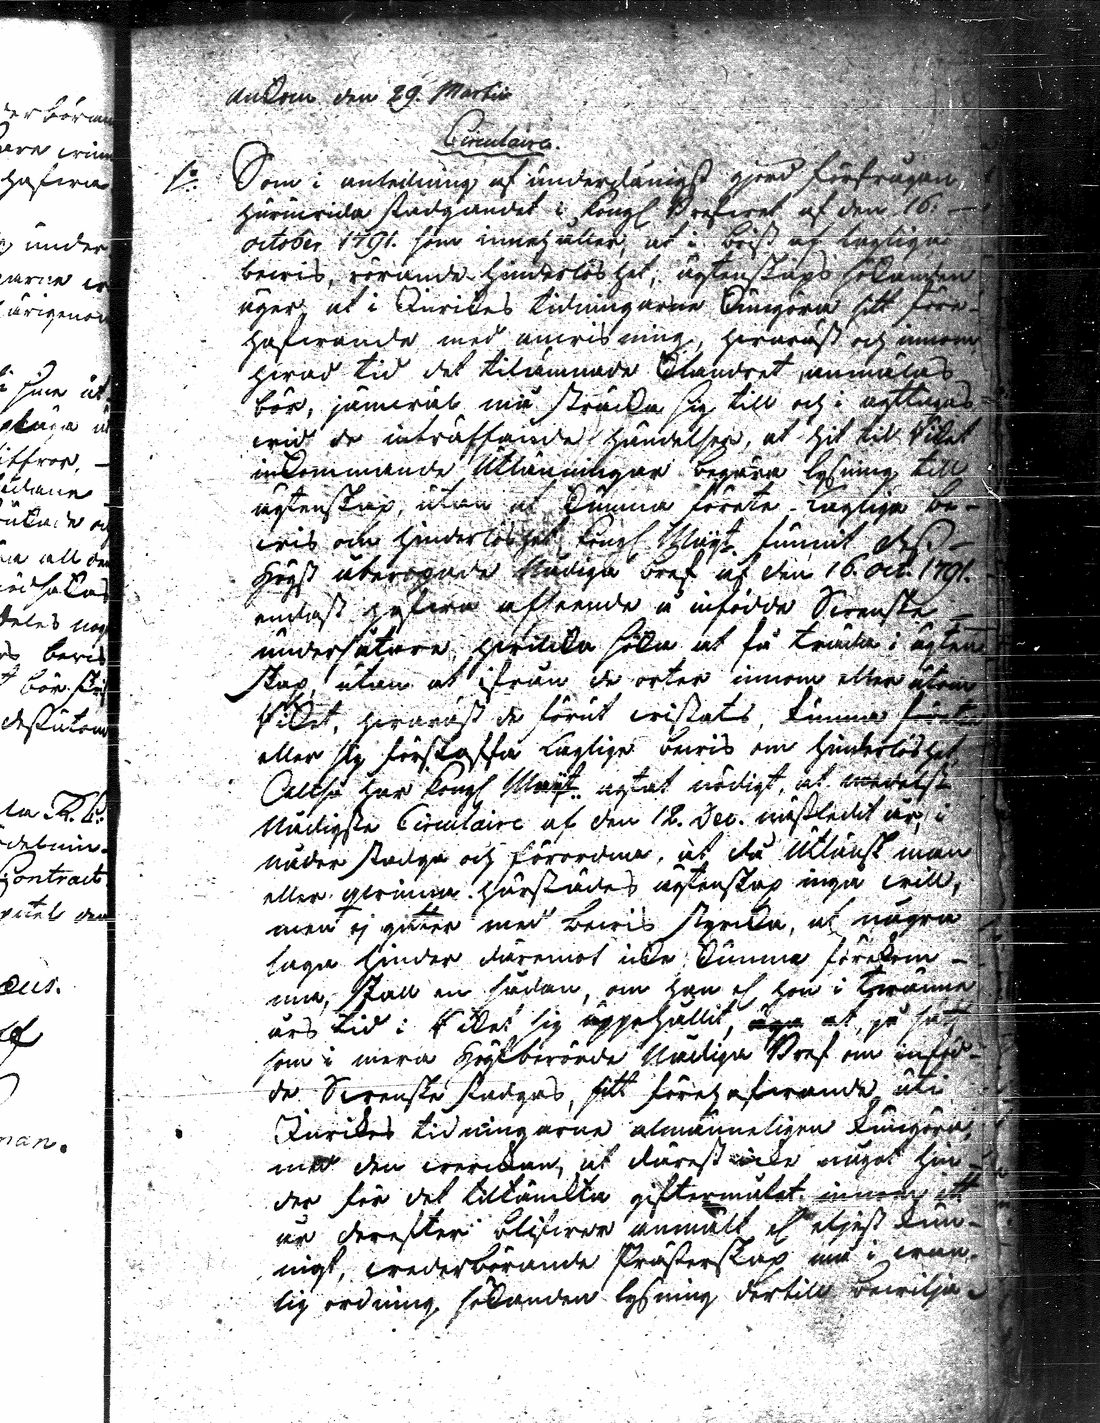 ankom den 29. Martii
Circulaire.
1:o Som i anledning af underdånigst gjord förfrågan
huruvida stadgandet i Kongl Brefwet af den 16.
october 1791. som innehåller, at i brist af lagliga
bewis, rörande hinderlöshet, ägtenskaps sökanden
äger at i Inrikes tidningarne kungöra sitt före-
hafwande med anwisning, hwaräst och innom
hwad tid det tilärnade klandret anmälas
bör, jämwäl må sträcka sig till och i agttagas
wid de inträffande händelser, at hit til Riket
inkommande Utlänningar begära lysning till
ägtenskap, utan at kunna förete lagliga be-
wis om hinderlöshet, Kongl Mayt funnit dess
Högst åberopade Nådiga bref af den 16. Oct. 1791.
endast hafwa afseende å infödde Swenske
undersåtare, hwilcka söka at få träda i ägten
skap, utan at ifrån de orter innom eller utom
Riket, hwaräst de förut wistats, kunna förete
eller sig förskaffa laglige bewis om hinderlöshet,
Altså har Kongl Mayt. agtat nödigt, at medelst
Nådigste Circulaire af den 12. Dec. nästledit år, i
nåder stadga och förordna, at då Utländsk man
eller qwinna härstädes ägtenskap ingå will,
men ej gitter med bewis styrcka, at några
laga hinder däremot icke kunna förekom-
ma, skall en sådan, om han el hon i twänne
års tid i Riket sig uppehållit, äga at, på sätt
som i mera Högstberörde Nådiga Bref om inföd-
de Swenske stadgas, sitt förehafwande uti
Inrikes tidningarne almänneligen kungöra,
med den werckan, at därest icke något hin-
der för det tilltänckta giftermålet innom ett
år derefter blifwer anmält el eljest kun-
nigt, wederbörande Prästerskap må i wan-
lig ordning sökanden lysning dertill bewilja